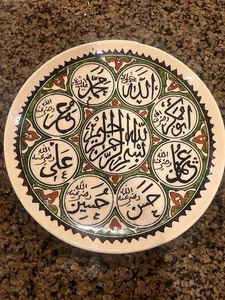 بسم الله الرحمن الرحيم
الله جل جلاله
محمد
ابوبكر رضي الله عنه
عمر رضي الله عنه
عثمان رضي الله عنه
علي رضي الله عنه
حسن رضي الله عنه
حسين رضي الله عنه